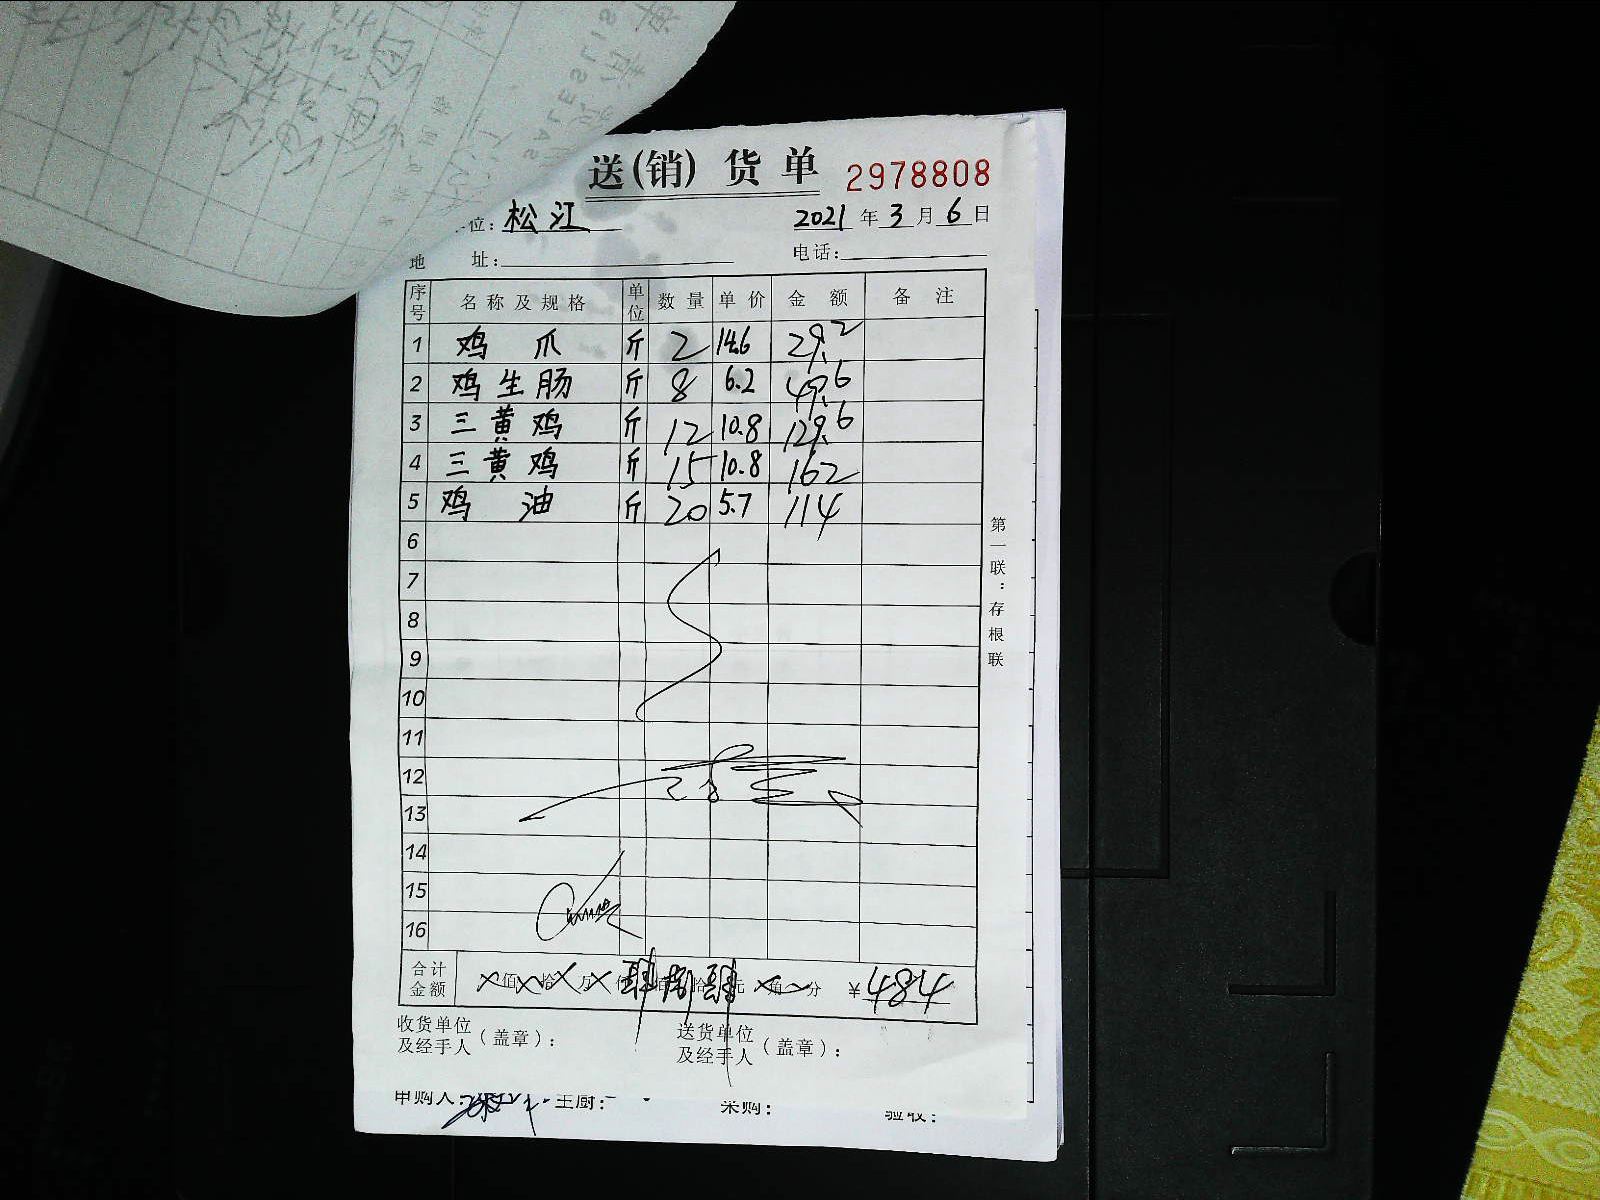 送(销)货单 2978808
位: 松江 2021年3月6日
地 址: 电话:
序号 名称及规格 单位 数量 单价 金额 备注
1 鸡爪 斤 2 14.6 29.2
2 鸡生肠 斤 8 6.2 49.6
3 三黄鸡 斤 12 10.8 129.6
4 三黄鸡 斤 15 10.8 162
5 鸡油 斤 20 5.7 114
6
7
8
9
10
11
12
13
14
15
16
第一联:存根联
合计金额 ×佰×拾×万×仟肆佰捌拾肆元×角×分 ¥484
收货单位及经手人(盖章): 送货单位及经手人(盖章):
申购人: 主厨: 采购: 验收: